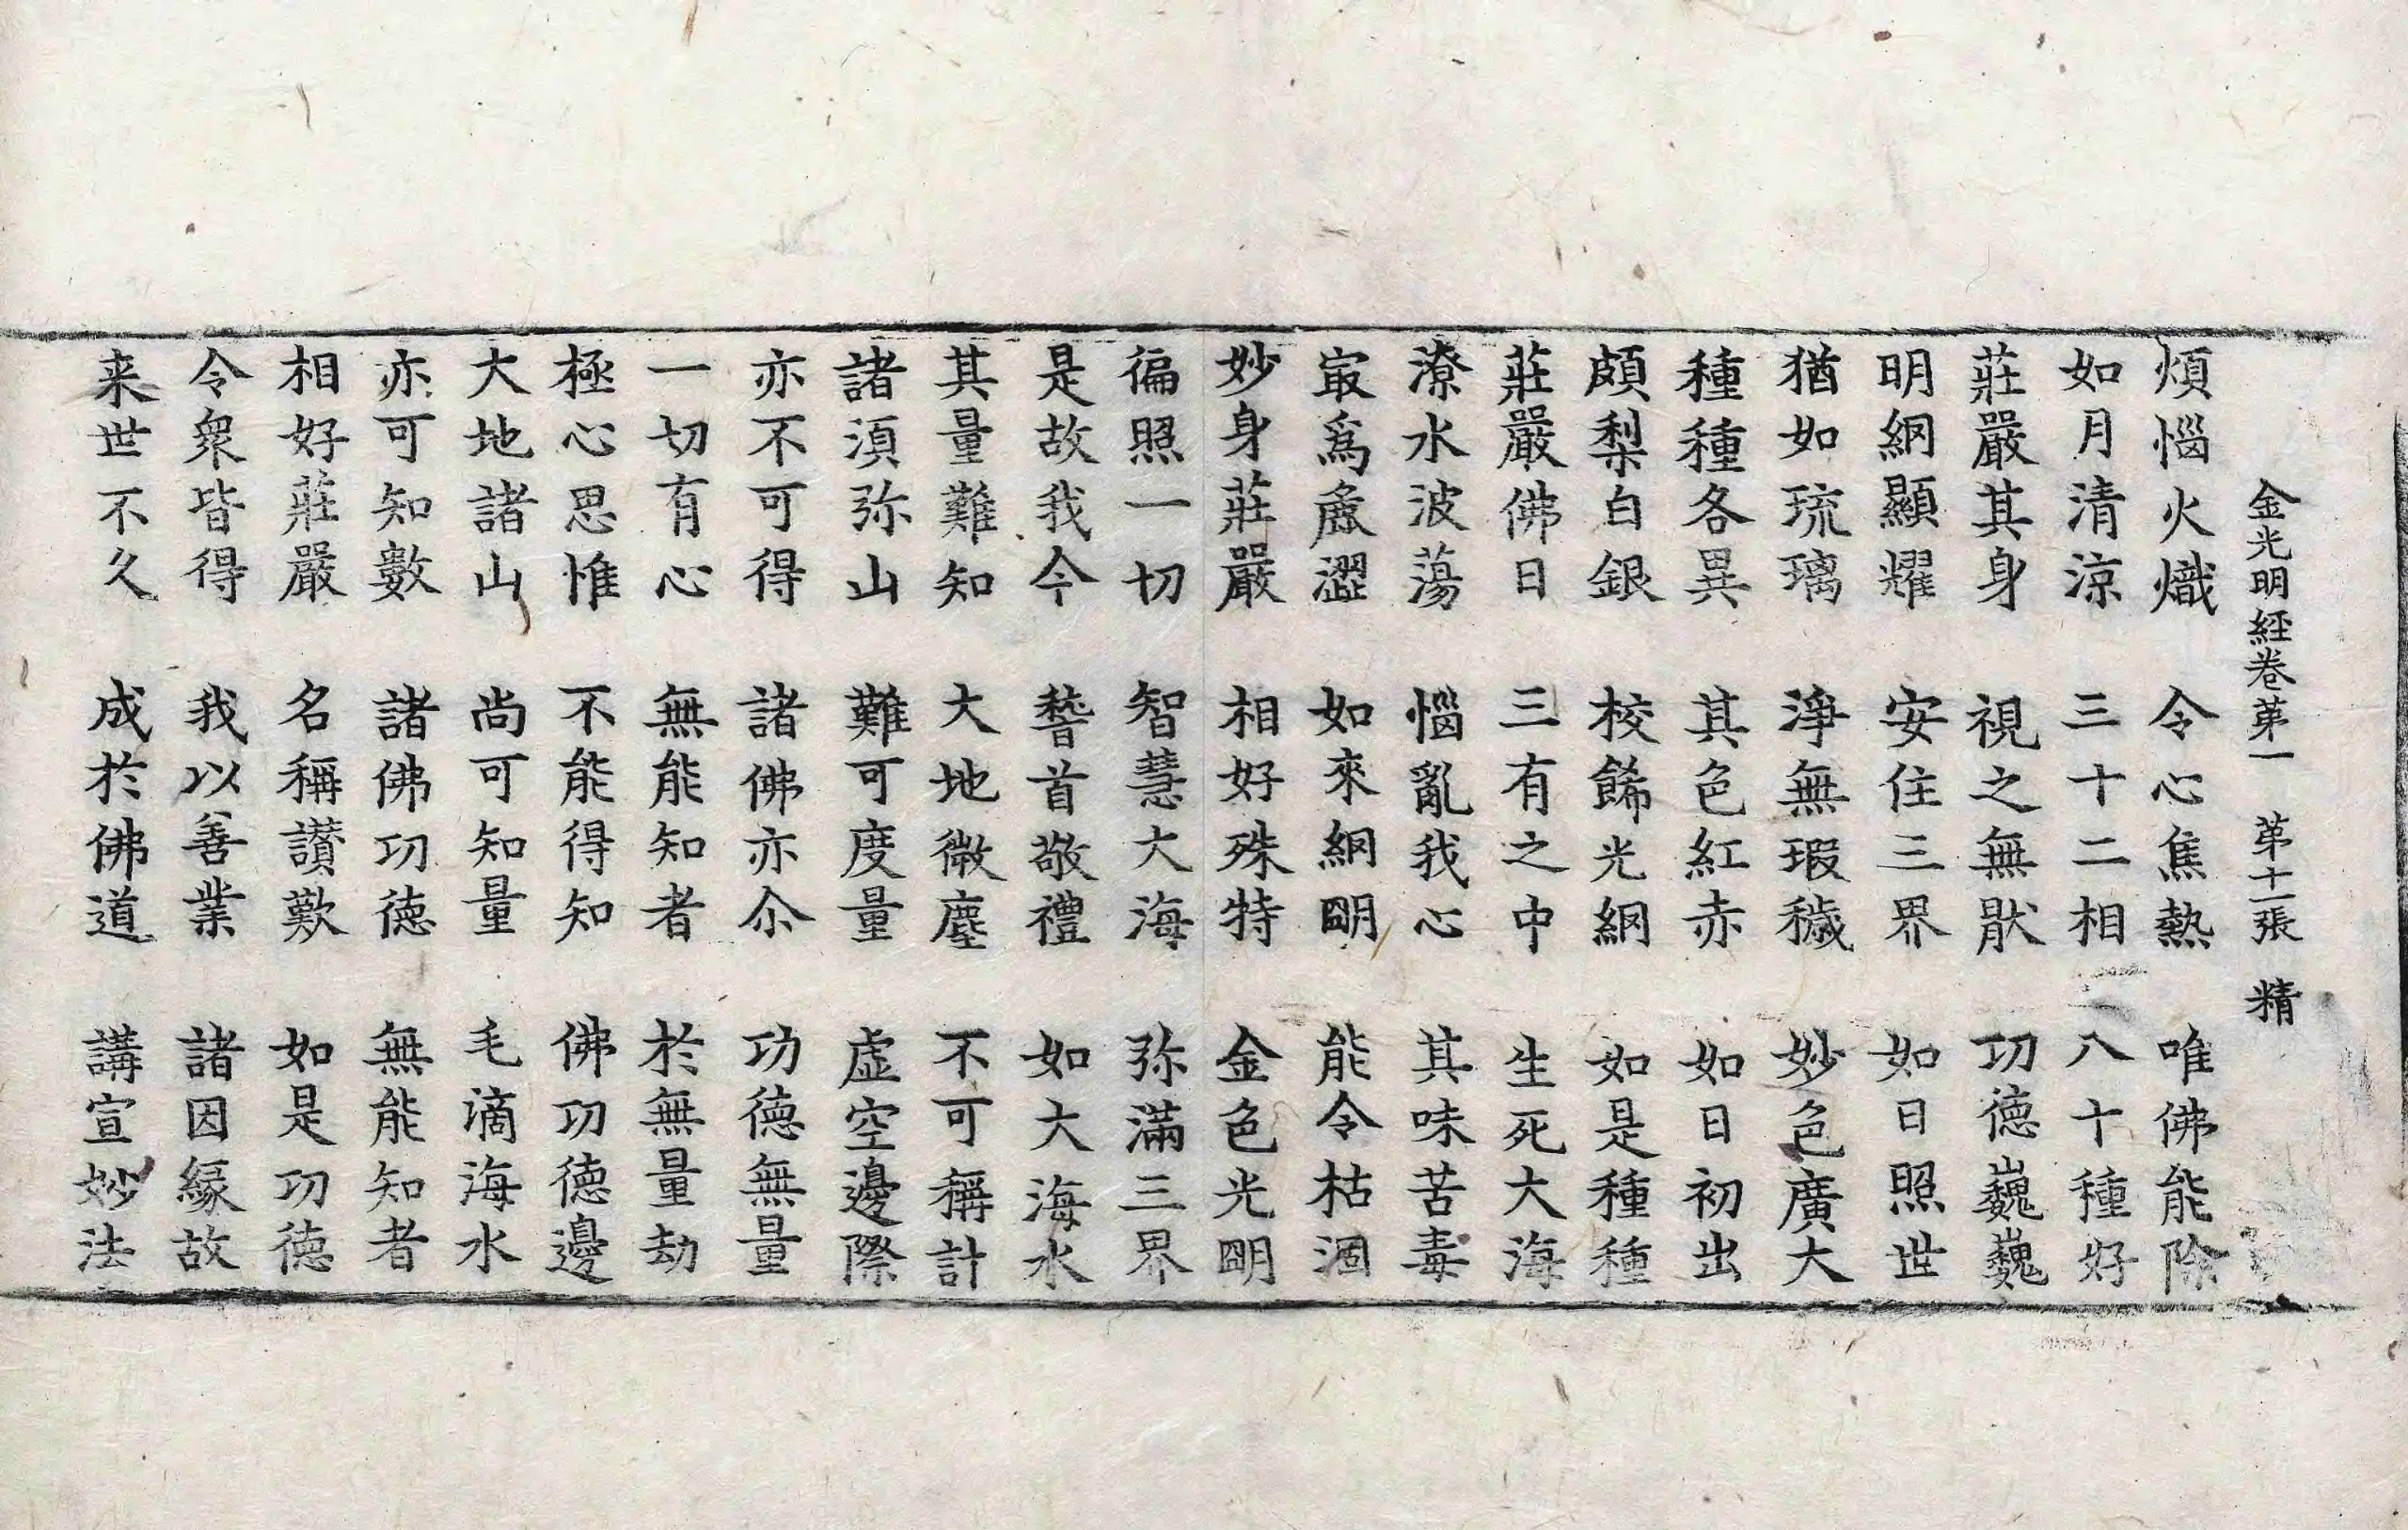 金光明經卷第一 第十一張 精
煩惱火熾 令心焦熱 唯佛能除
如月清涼 三十二相 八十種好
莊嚴其身 視之無猒 功德巍巍
明網顯耀 安住三界 如日照世
猶如琉璃 淨無瑕穢 妙色廣大
種種各異 其色紅赤 如日初出
頗梨白銀 校餙光網 如是種種
莊嚴佛日 三有之中 生死大海
潦水波蕩 惱亂我心 其味苦毒
冣為麁澀 如來網明 能令枯涸
妙身莊嚴 相好殊特 金色光明
徧照一切 智慧大海 弥滿三界
是故我今 稽首敬禮 如大海水
其量難知 大地微塵 不可稱計
諸須弥山 難可度量 虛空邊際
亦不可得 諸佛亦尒 功德無量
一切有心 無能知者 於無量劫
極心思惟 不能得知 佛功德邊
大地諸山 尚可知量 毛滴海水
亦可知數 諸佛功德 無能知者
相好莊嚴 名稱讚歎 如是功德
令衆皆得 我以善業 諸因緣故
来世不久 成於佛道 講宣妙法